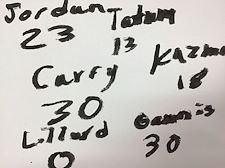 Jordan
23
Tatum
13
Kazma
18
Carry
30
Lillard
0
Gannis
30